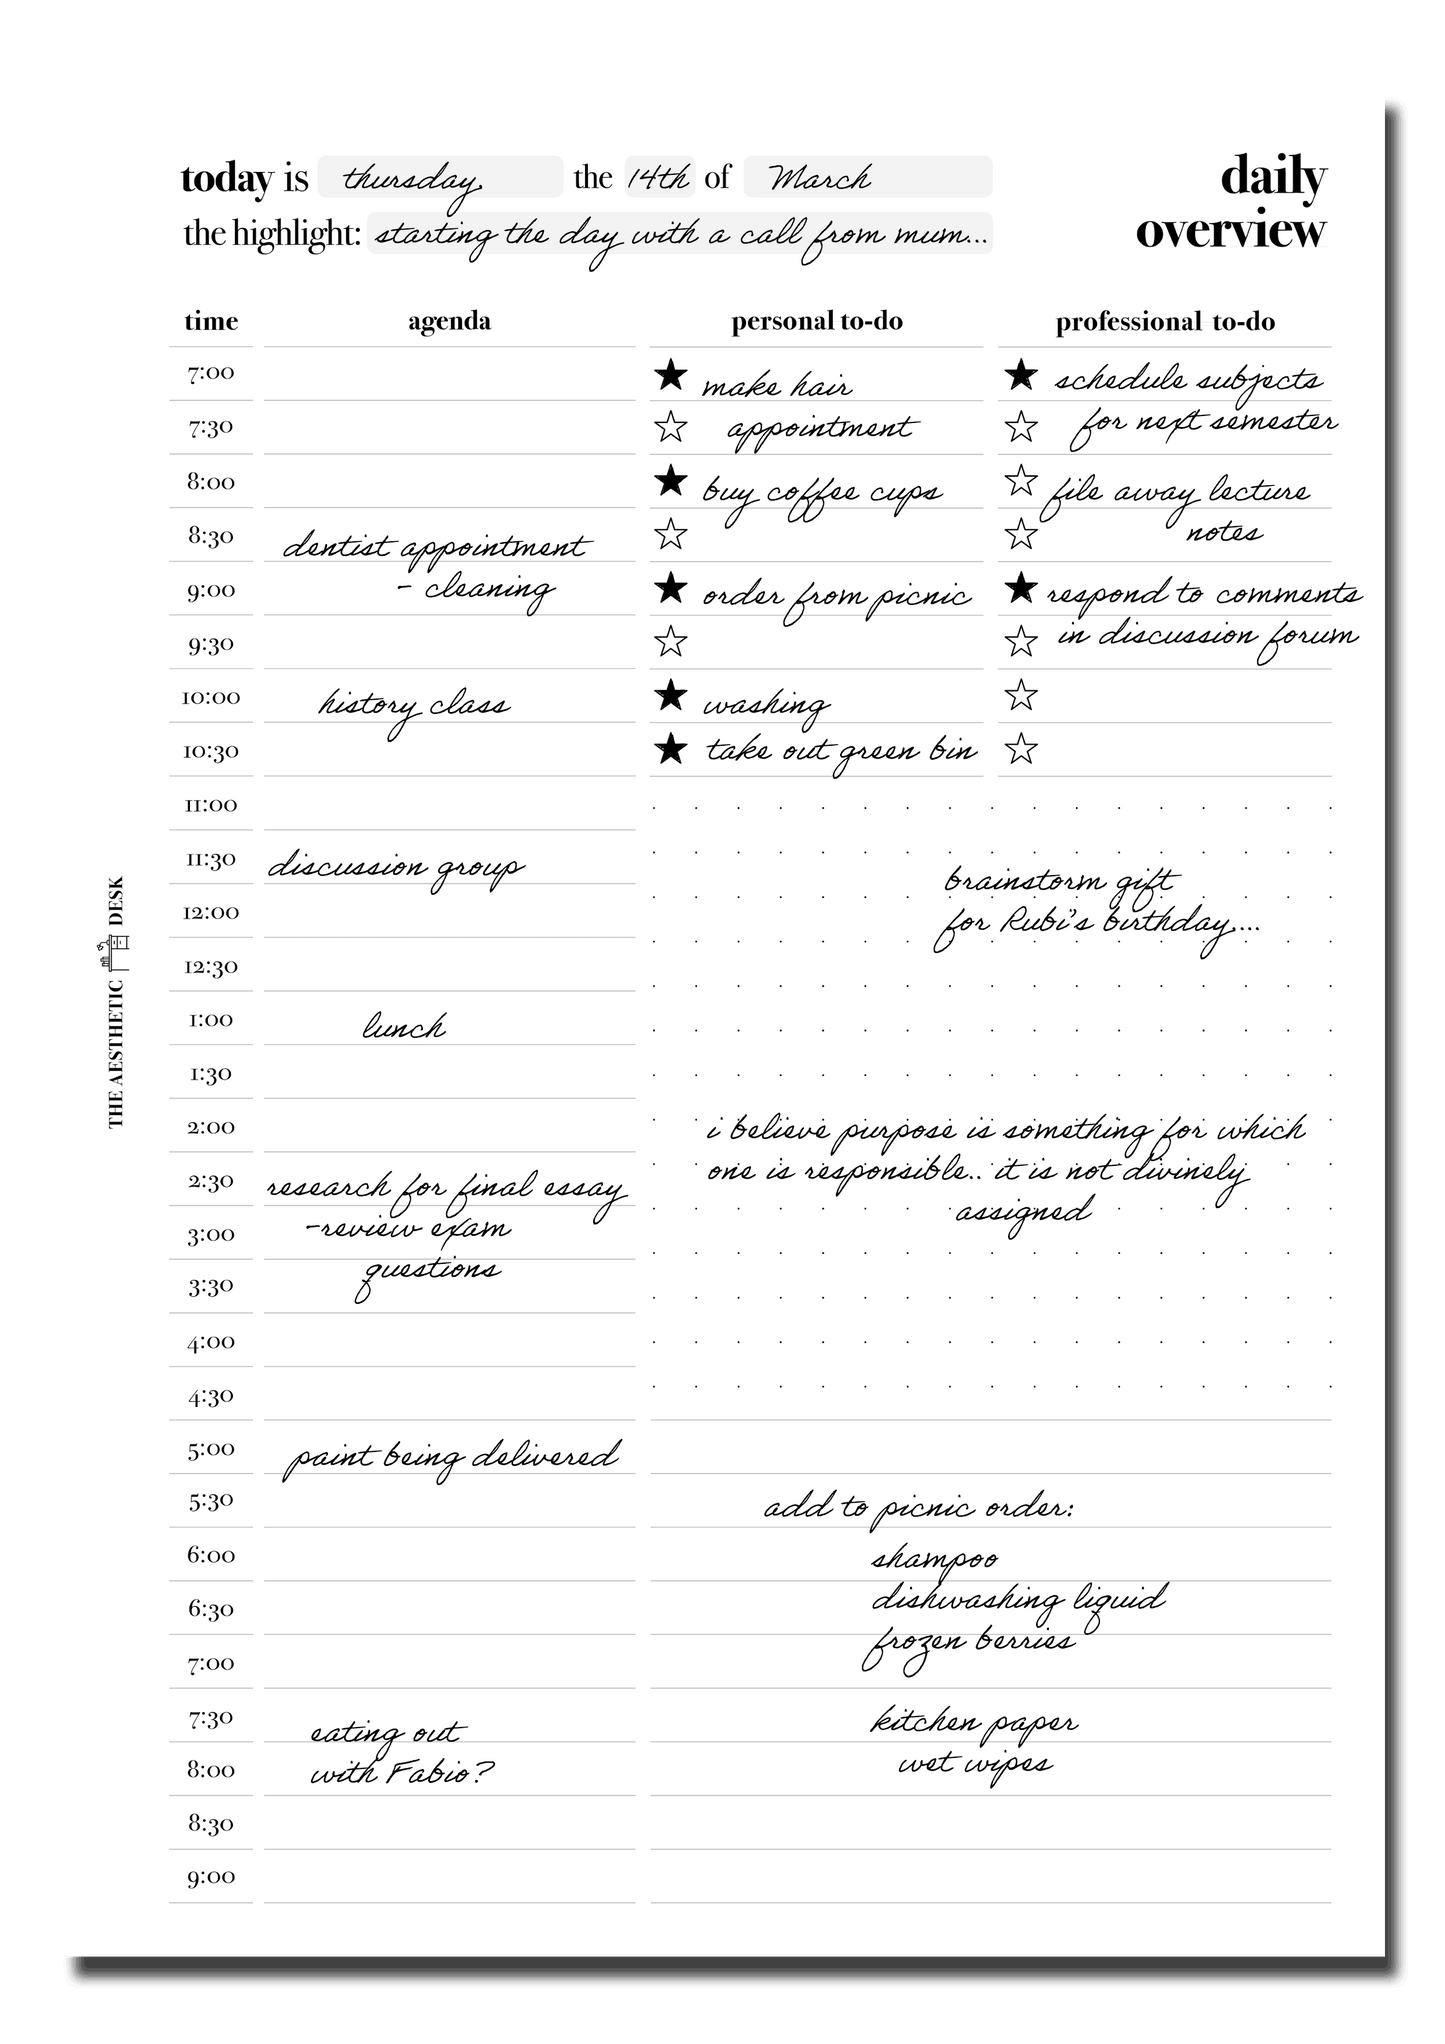 today is thursday the 14th of March
the highlight: starting the day with a call from mum...
daily
overview
time
agenda
personal to-do
professional to-do
7:00
7:30
8:00
8:30
dentist appointment
9:00
- cleaning
9:30
10:00
history class
10:30
11:00
11:30
discussion group
12:00
12:30
1:00
lunch
1:30
2:00
2:30
research for final essay
3:00
-review exam
3:30
questions
4:00
4:30
5:00
paint being delivered
5:30
6:00
6:30
7:00
7:30
eating out
8:00
with Fabio?
8:30
9:00
make hair
appointment
buy coffee cups
order from picnic
washing
take out green bin
schedule subjects
for next semester
file away lecture
notes
respond to comments
in discussion forum
brainstorm gift
for Rubi's birthday...
i believe purpose is something for which
one is responsible.. it is not divinely
assigned
add to picnic order:
shampoo
dishwashing liquid
frozen berries
kitchen paper
wet wipes
THE AESTHETIC DESK